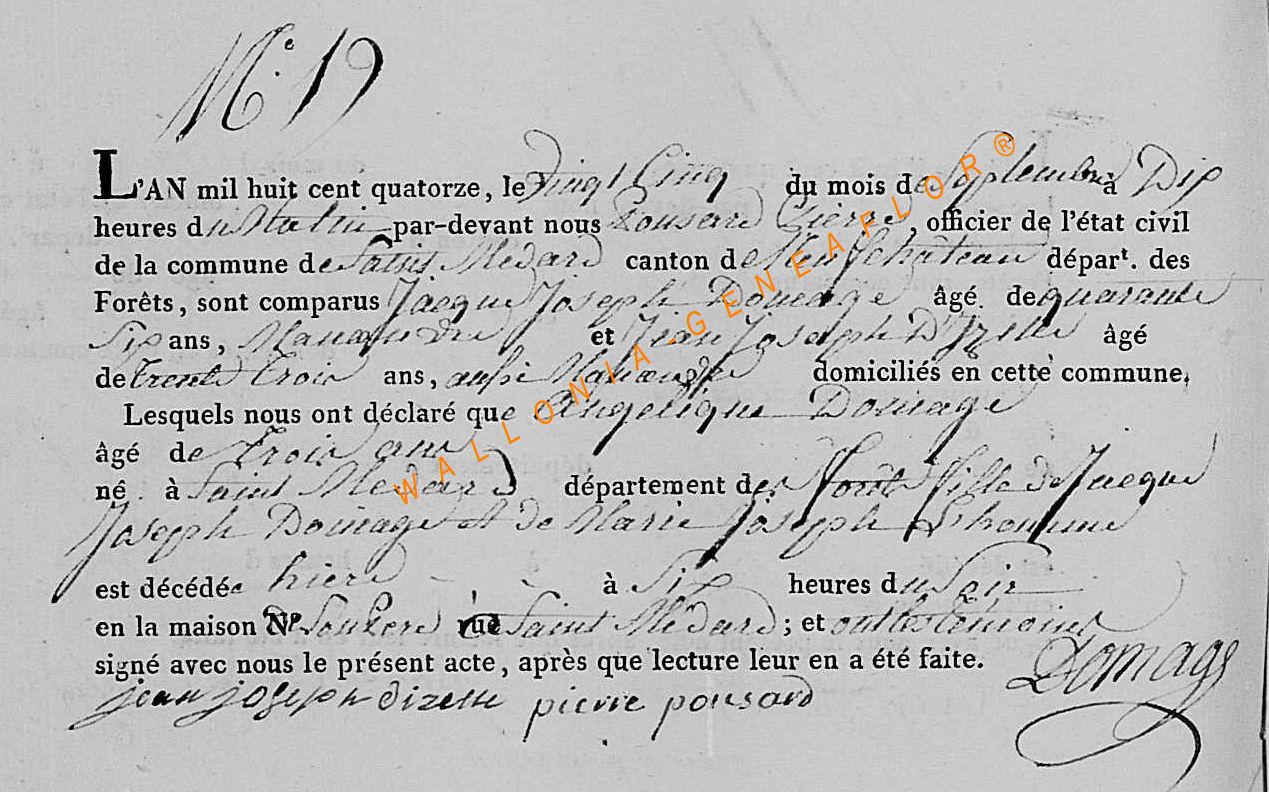 N.º 19
L'AN mil huit cent quatorze, le Vingt Cinq du mois de Septembre à Dix
heures du Matin par-devant nous Pousard Pierre, officier de l'état civil
de la commune de Saint Médard canton de Neufchâteau départ. des
Forêts, sont comparus Jacque Joseph Domage âgé de quarante
Six ans, Manœuvre et Jean Joseph Dizelle âgé
de trente trois ans, aussi Manœuvre domiciliés en cette commune,
Lesquels nous ont déclaré que Angelique Domage
âgé de trois ans
né à Saint Médard département des Forêts fille de Jacque
Joseph Domage et de Marie Joseph Lhomme
est décédée hiere à Six heures du Soir
en la maison de Son Pere à Saint Médard; et ont les témoins
signé avec nous le présent acte, après que lecture leur en a été faite.
jean joseph dizelle pierre pousard Domage
WALLONIA-GENEAFLOR®